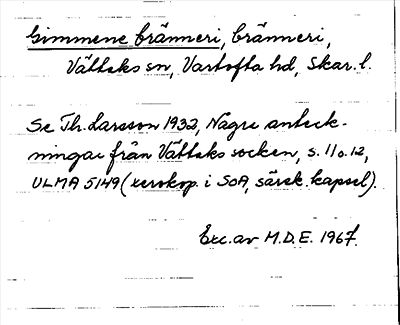 Gimmene bränneri, bränneri,
Vättaks sn, Vartofta hd, Skar. l.
Se Th. Larsson 1932, Några anteck-
ningar från Vättaks socken, s. 11 o. 12,
ULMA 5149 (xerokop. i SOA, särsk. kapsel).
Exc. av M.D.E. 1967.